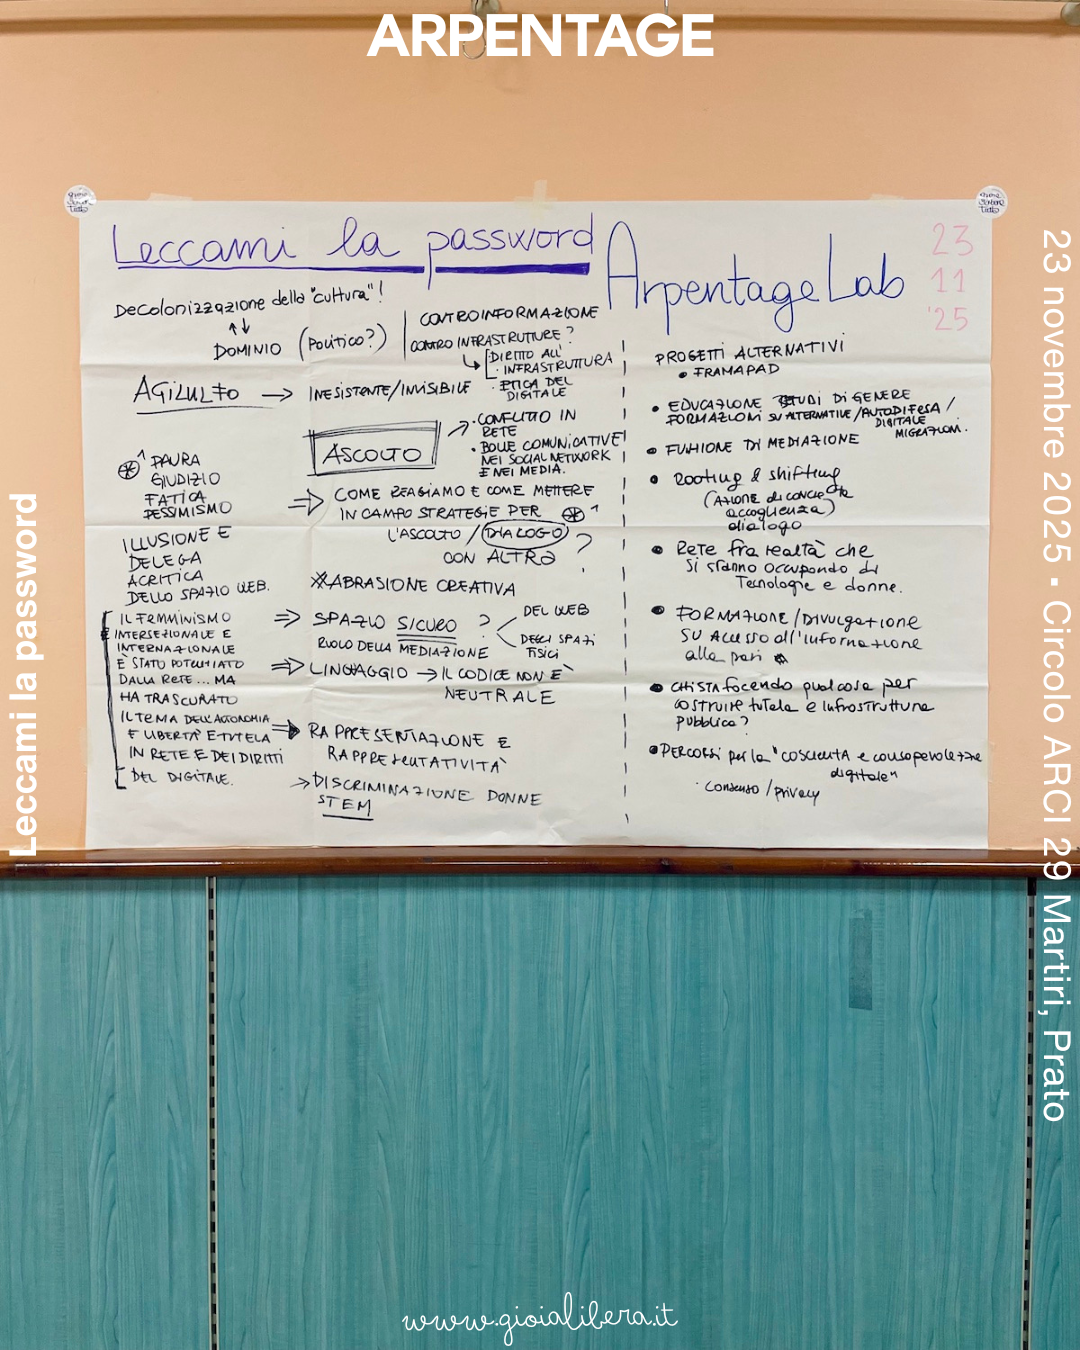 ARPENTAGE
Leccami la password
Arpentage Lab
23
11
'25
Decolonizzazione della "cultura"!
DOMINIO (politico?)
CONTROINFORMAZIONE
CONTRO INFRASTRUTTURE?
DIRITTO ALL'
INFRASTRUTTURA
· ETICA DEL
DIGITALE
AGILULFO → INESISTENTE/INVISIBILE
ASCOLTO
· CONFLITTO IN
RETE
· BOLLE COMUNICATIVE
NEI SOCIAL NETWORK
E NEI MEDIA.
PAURA
GIUDIZIO
FATICA
PESSIMISMO
⇒ COME REAGIAMO E COME METTERE
IN CAMPO STRATEGIE PER
L'ASCOLTO / DIALOGO
CON ALTRƏ ?
ILLUSIONE E
DELEGA
ACRITICA
DELLO SPAZIO WEB.
ABRASIONE CREATIVA
IL FEMMINISMO
INTERSEZIONALE E
INTERNAZIONALE
E' STATO POTENZIATO
DALLA RETE... MA
HA TRASCURATO
IL TEMA DELL'AUTONOMIA
E LIBERTA' E TUTELA
IN RETE E DEI DIRITTI
DEL DIGITALE.
⇒ SPAZIO SICURO ?
DEL WEB
DEGLI SPAZI
FISICI
RUOLO DELLA MEDIAZIONE
⇒ LINGUAGGIO → IL CODICE NON E'
NEUTRALE
⇒ RAPPRESENTAZIONE E
RAPPRESENTATIVITA'
→ DISCRIMINAZIONE DONNE
STEM
PROGETTI ALTERNATIVI
• FRAMAPAD
• EDUCAZIONE STUDI DI GENERE
FORMAZIONI SU ALTERNATIVE/AUTODIFESA/
DIGITALE
MIGRAZIONI.
• FUNZIONE DI MEDIAZIONE
• Rooting & shifting
(Azione di
accoglienza)
dialogo
• Rete fra realtà che
si stanno occupando di
Tecnologie e donne.
• FORMAZIONE/DIVULGAZIONE
SU Accesso all'informazione
alla pari
• CHI STA facendo qualcosa per
costruire tutela e infrastruttura
pubblica?
• PERCORSI per la "COSCIENZA e consapevolezza
digitale"
· consenso / privacy
Leccami la password
23 novembre 2025 • Circolo ARCI 29 Martiri, Prato
www.gioialibera.it